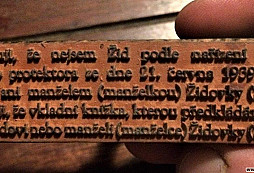 , že nejsem Žid podle nařízení
protektora ze dne 21. června 1939
ani manželem (manželkou) Židovky (
, že vkladní knížka, kterou předkládá
nebo manželi (manželce) Židovky (